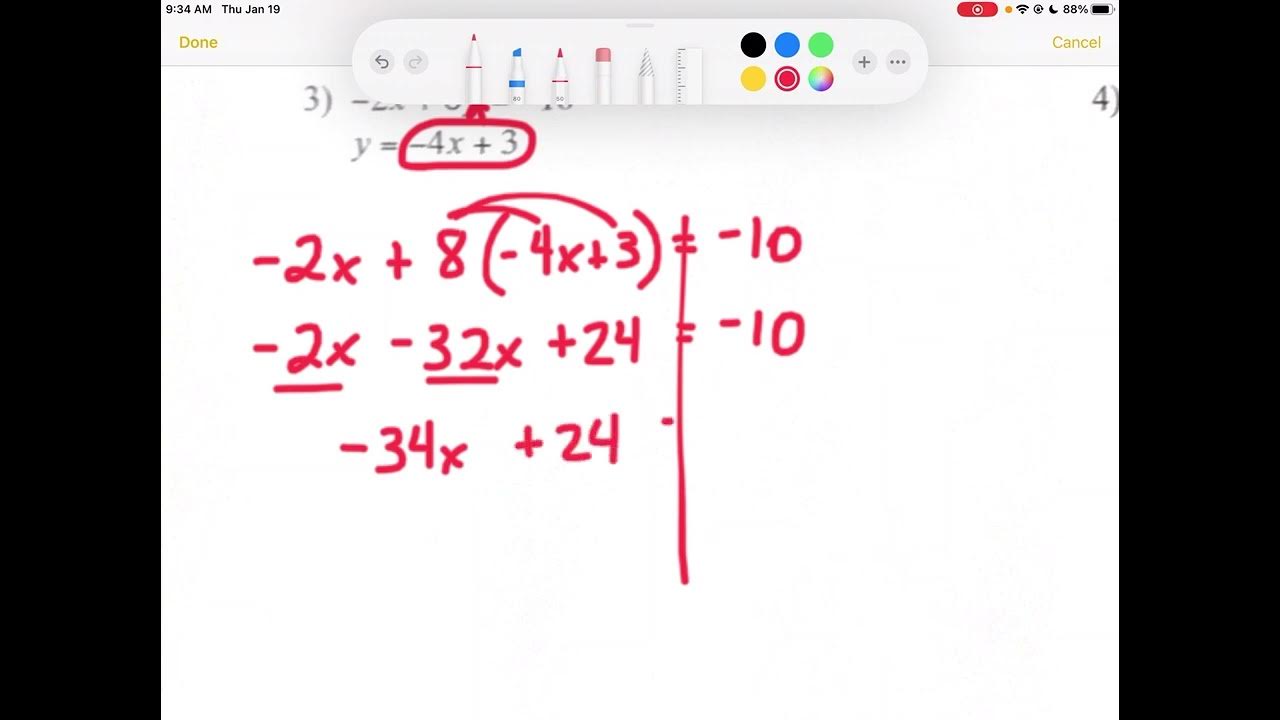 9:34 AM Thu Jan 19 88%
Done Cancel
80 50
3) 4)
y = -4x + 3
-2x + 8(-4x+3) = -10
-2x -32x +24 = -10
-34x +24 -